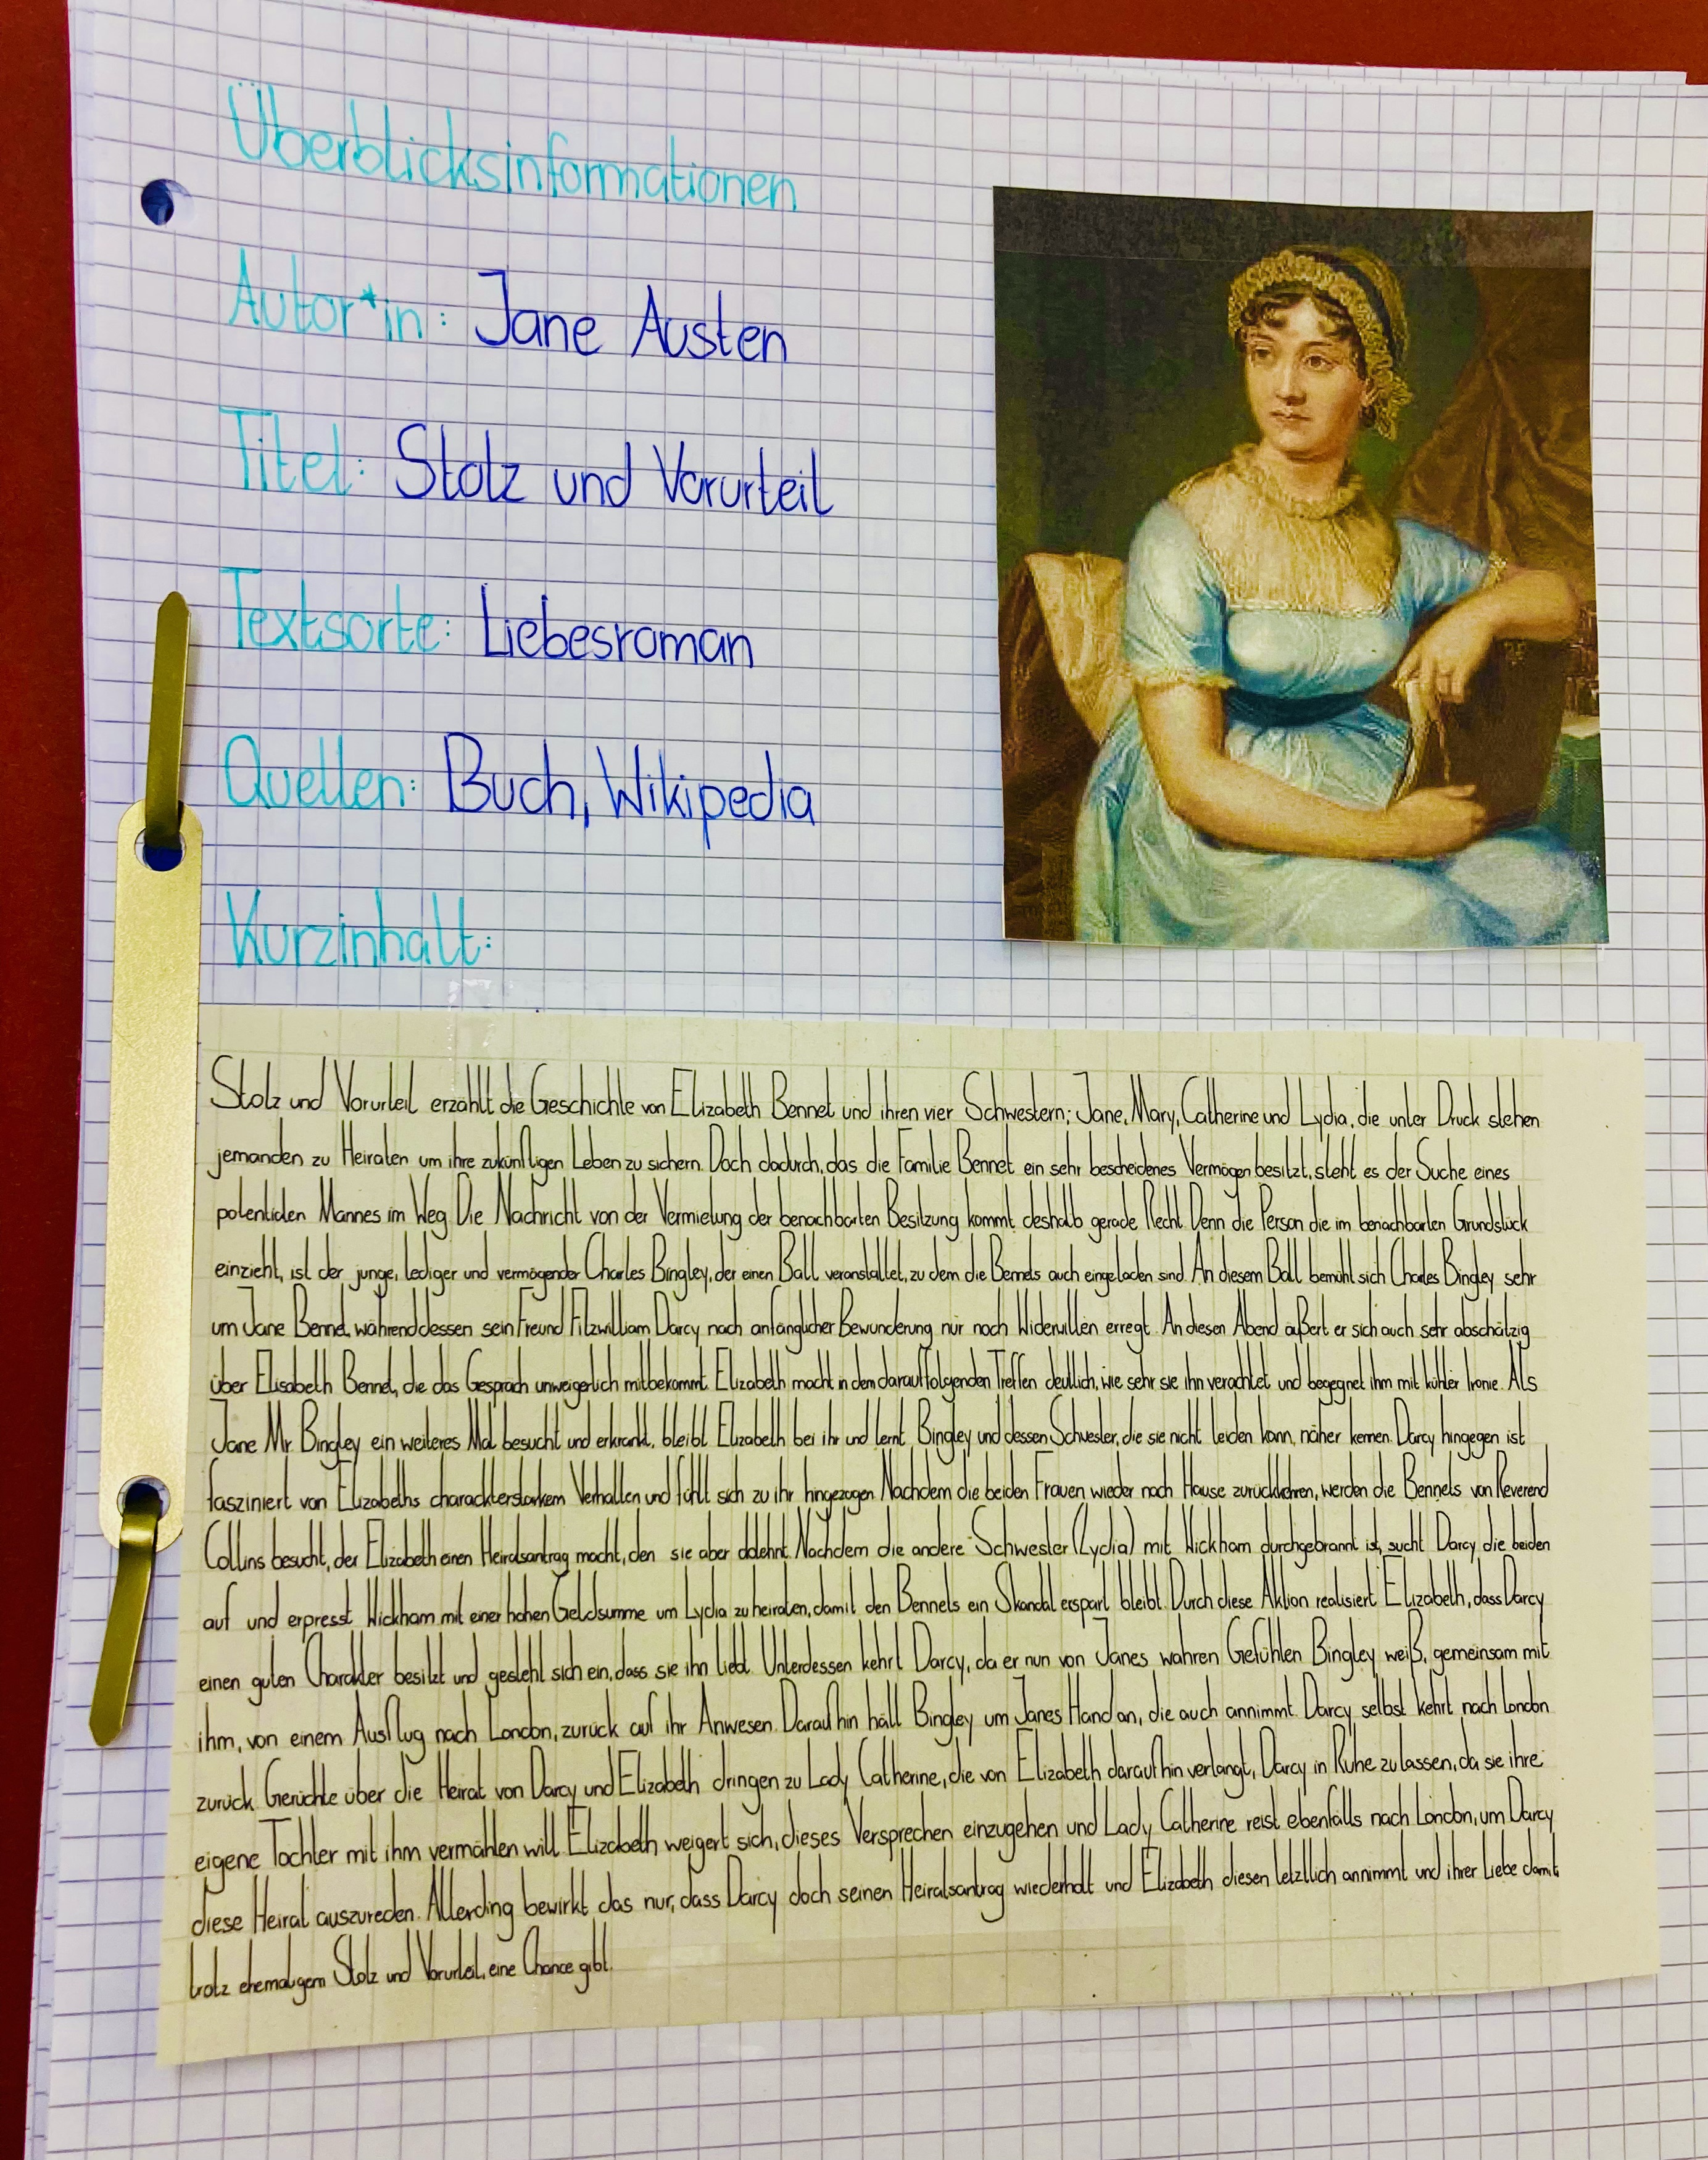 Überblicksinformationen
Autor*in: Jane Austen
Titel: Stolz und Vorurteil
Textsorte: Liebesroman
Quellen: Buch, Wikipedia
Kurzinhalt:
Stolz und Vorurteil erzählt die Geschichte von Elizabeth Bennet und ihren vier Schwestern; Jane, Mary, Catherine und Lydia, die unter Druck stehen
jemanden zu Heiraten um ihre zukünftigen Leben zu sichern. Doch dadurch, das die Familie Bennet ein sehr bescheidenes Vermögen besitzt, steht es der Suche eines
potentiellen Mannes im Weg. Die Nachricht von der Vermietung der benachbarten Besitzung kommt deshalb gerade Recht. Denn die Person die im benachbarten Grundstück
einzieht, ist der junge, lediger und vermögender Charles Bingley, der einen Ball veranstaltet, zu dem die Bennets auch eingeladen sind. An diesem Ball bemüht sich Charles Bingley sehr
um Jane Bennet, währenddessen sein Freund Fitzwilliam Darcy nach anfänglicher Bewunderung nur noch Widerwillen erregt. An diesen Abend äußert er sich auch sehr abschätzig
über Elisabeth Bennet, die das Gespräch unweigerlich mitbekommt. Elizabeth macht in dem darauffolgenden Treffen deutlich, wie sehr sie ihn verachtet und begegnet ihm mit kühler Ironie. Als
Jane Mr. Bingley ein weiteres Mal besucht und erkrankt, bleibt Elizabeth bei ihr und lernt Bingley und dessen Schwester, die sie nicht leiden kann, näher kennen. Darcy hingegen ist
fasziniert von Elizabeths charackterstarkem Verhalten und fühlt sich zu ihr hingezogen. Nachdem die beiden Frauen wieder nach Hause zurückkehren, werden die Bennets von Reverend
Collins besucht, der Elizabeth einen Heiratsantrag macht, den sie aber ablehnt. Nachdem die andere Schwester (Lydia) mit Wickham durchgebrannt ist, sucht Darcy die beiden
auf und erpresst Wickham mit einer hohen Geldsumme um Lydia zu heiraten, damit den Bennets ein Skandal erspart bleibt. Durch diese Aktion realisiert Elizabeth, dass Darcy
einen guten Charakter besitzt und gesteht sich ein, dass sie ihn liebt. Unterdessen kehrt Darcy, da er nun von Janes wahren Gefühlen Bingley weiß, gemeinsam mit
ihm, von einem Ausflug nach London, zurück auf ihr Anwesen. Daraufhin hält Bingley um Janes Hand an, die auch annimmt. Darcy selbst kehrt nach London
zurück. Gerüchte über die Heirat von Darcy und Elizabeth dringen zu Lady Catherine, die von Elizabeth daraufhin verlangt, Darcy in Ruhe zu lassen, da sie ihre
eigene Tochter mit ihm vermählen will. Elizabeth weigert sich, dieses Versprechen einzugehen und Lady Catherine reist ebenfalls nach London, um Darcy
diese Heirat auszureden. Allerding bewirkt das nur, dass Darcy doch seinen Heiratsantrag wiederholt und Elizabeth diesen letztlich annimmt und ihrer Liebe damit,
trotz ehemaligem Stolz und Vorurteil, eine Chance gibt.